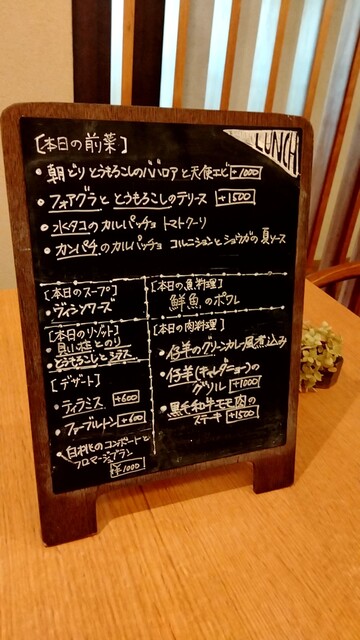 LUNCH
[本日の前菜]
• 朝どりとうもろこしのババロアと天使エビ +1000
• フォアグラととうもろこしのテリーヌ +1500
• 水ダコのカルパッチョ トマトクーリ
• カンパチのカルパッチョ コルニションとショウガの夏ソース
[本日のスープ]
• ヴィシソワーズ
[本日のリゾット]
とうもろこしと
[デザート]
• ティラミス +600
• ファーブルトン +600
• 白桃のコンポートと
フロマージュブラン
¥1000
[本日の魚料理]
鮮魚のポワレ
[本日の肉料理]
• 仔羊のグリーンカレー風煮込み
• 仔羊(キャレダニョー)の
グリル +1000
• 黒毛和牛モモ肉の
ステーキ +1500